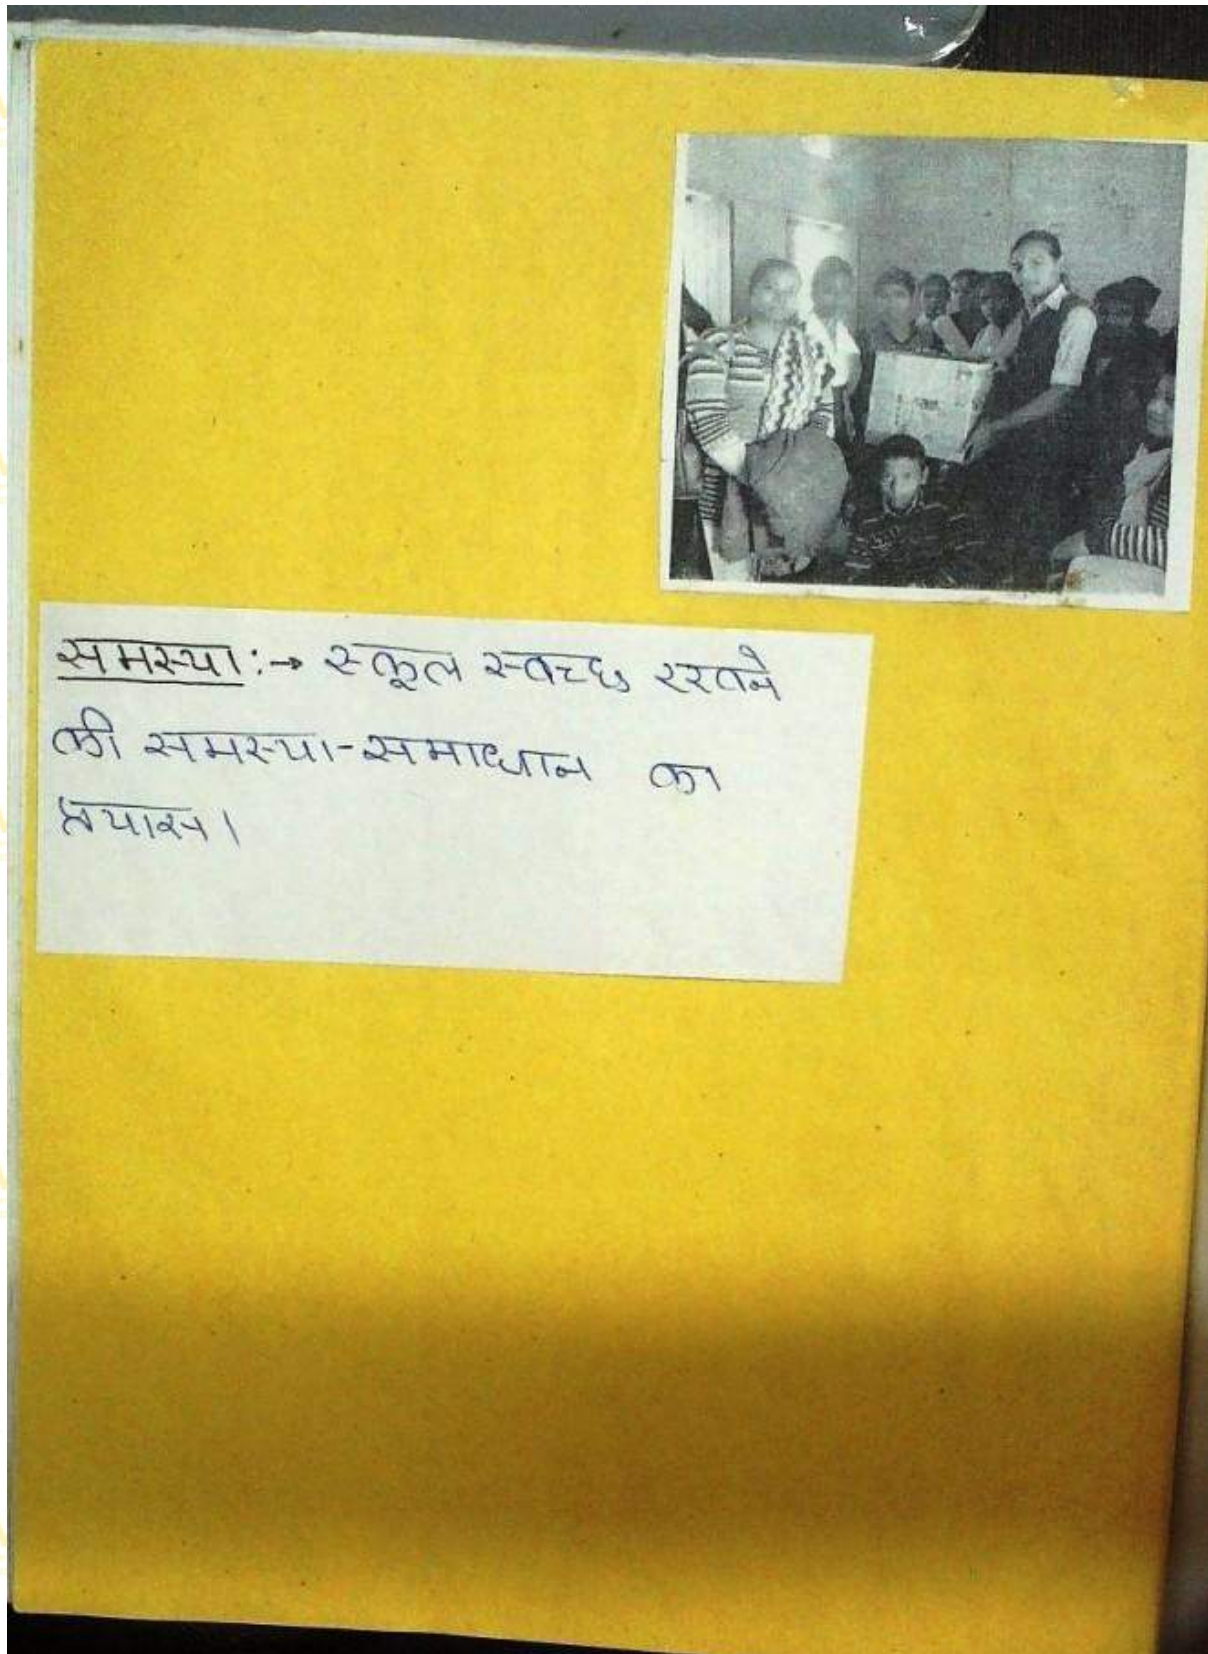 समस्या :→ स्कूल स्वच्छ रखने
की समस्या-समाधान का
प्रयास।